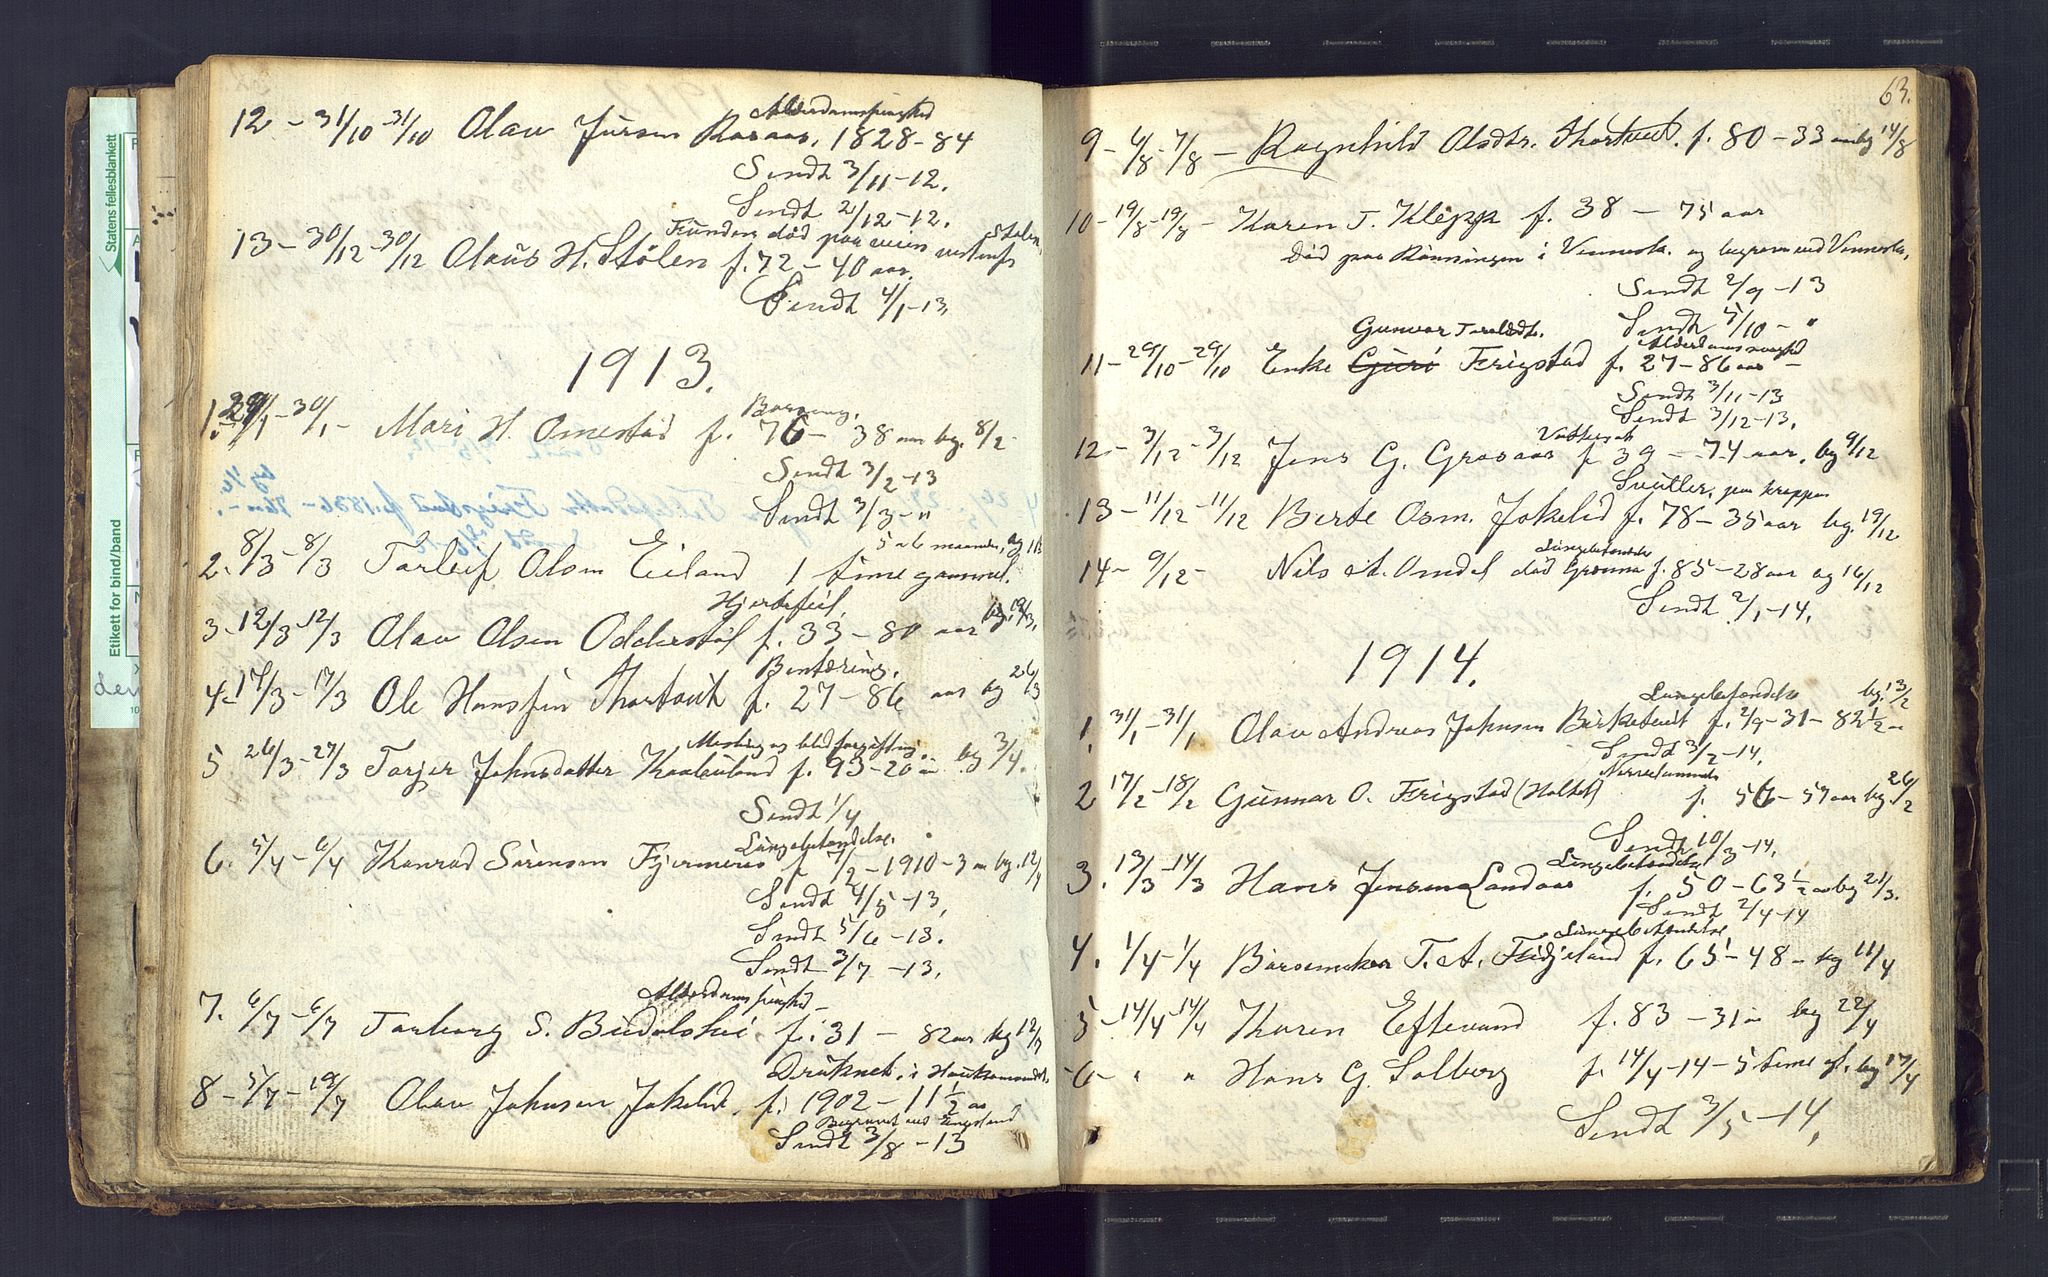 Alderdomssvaghed
12 – 31/10 31/10 Olav Jörsen Rosaas, 1828–84
Sendt 3/11–12.
Sendt 2/12–12.
Funden död paa veien
Stölen
13 – 30/12 – 30/12 Olaüs H. Stölen f. 72 – 40 aar.
Sendt 4/1–13
1913.
1. 29/1 – 30/1 – Mari H. Omestad f. 76 – 38 aar bg. 8/2
Sendt 3/2–13
Sendt 3/3–"
5 a 6 maaneder,
2. 8/3 – 8/3 Tarleif Olsen Eiland 1 time gammel.
Hjertefeil,
3 – 12/3 – 12/3 Olav Olsen Odderstøl f. 33 – 80 aar bg. 19/3.
4 – 17/3 – 17/3 Ole Hansen Thortveit f. 27 – 86 aar bg 26/3
Mesling og blodforgiftning.
5 26/3 – 27/3 Torjer Johnsdatter Kaaleland f. 93–20 bg 3/4.
Sendt 1/4
Lüngebetændelse.
6. 5/4 – 6/4 Konrad Sörensen Fjermeros f 7/2 – 1910 – 3 bg. 12/4
Sendt 4/5–13,
Sendt 5/6–13.
Sendt 3/7–13,
Alderdomssvaghed –
7. 6/7 – 6/7 Torborg S. Büdalshei f. 31 – 82 aar bg 12/7
Drüknet i
8 – 5/7 – 19/7 Olav Johnsen Jokelid, f. 1902 – 11 1/2
Begravet ved
Sendt 3/8–13
63.
9 – 6/8 – 7/8 – Ragnhild Olsdtr. Thortveit. f. 80 – 33 bg 14/8
10 – 19/8 – 19/8 – Karen T. Klepp f. 38 – 75 aar
Död paa Rönningen i Vennesla. og begraven ved Vennesla,
Sendt 2/9–13
Sendt 5/10 – "
Gunvor Taraldsdt.
Alderdomssvaghed
11 – 29/10 – 29/10 Enke Güro Frigstad f. 27 – 86 aar –
Sendt 3/11–13
Sendt 3/12–13,
Vattersot
12 – 3/12 – 3/12 Jens G. Grasaas f 39 – 74 aar, bg 9/12
Svülster, paa kroppen
13 – 11/12 – 11/12 Berte Osm. Jokelid f. 78 – 35 aar bg. 19/12
Lüngebetændelse
14 – 9/12 – Nils A. Omdal död f. 85 – 28 aar og 16/12
Sendt 2/1–14,
1914.
Lüngebetændelse bg. 13/2
1, 31/1 – 31/1 Olav Andreas Johnsen Birketveit f. 2/9–31 – 82 1/2
Sendt 3/2–14,
2 17/2 – 18/2 Günnar O. Frigstad (Holtet) f. 56 – 57 aar bg. 26/2
Sendt 10/3–14,
Lüngebetændelse
3. 13/3 – 14/3 Hans Jensen Landaas f. 50 – 63 1/2 bg 21/3.
Sendt 2/4–14
Lüngebetændelse
4. 1/4 – 1/4 T. A. Fidjeland f. 65 – 48 – bg 11/4
5 – 14/4 – 14/4 Karen Eftevand f. 83 – 31 bg 22/4
–6– " " Hans G. Solberg f. 14/4–14 – 5 time gl. bg 17/4
Sendt 3/5–14,
Statens fellesblankett
Etikett for bind/band